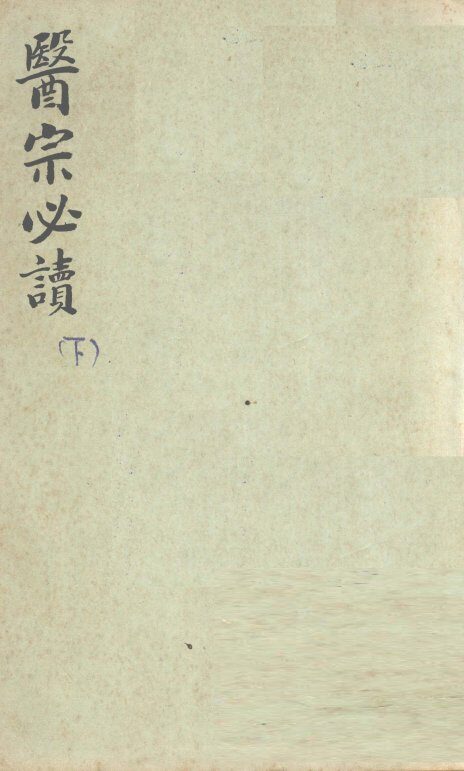 醫宗必讀
(下)